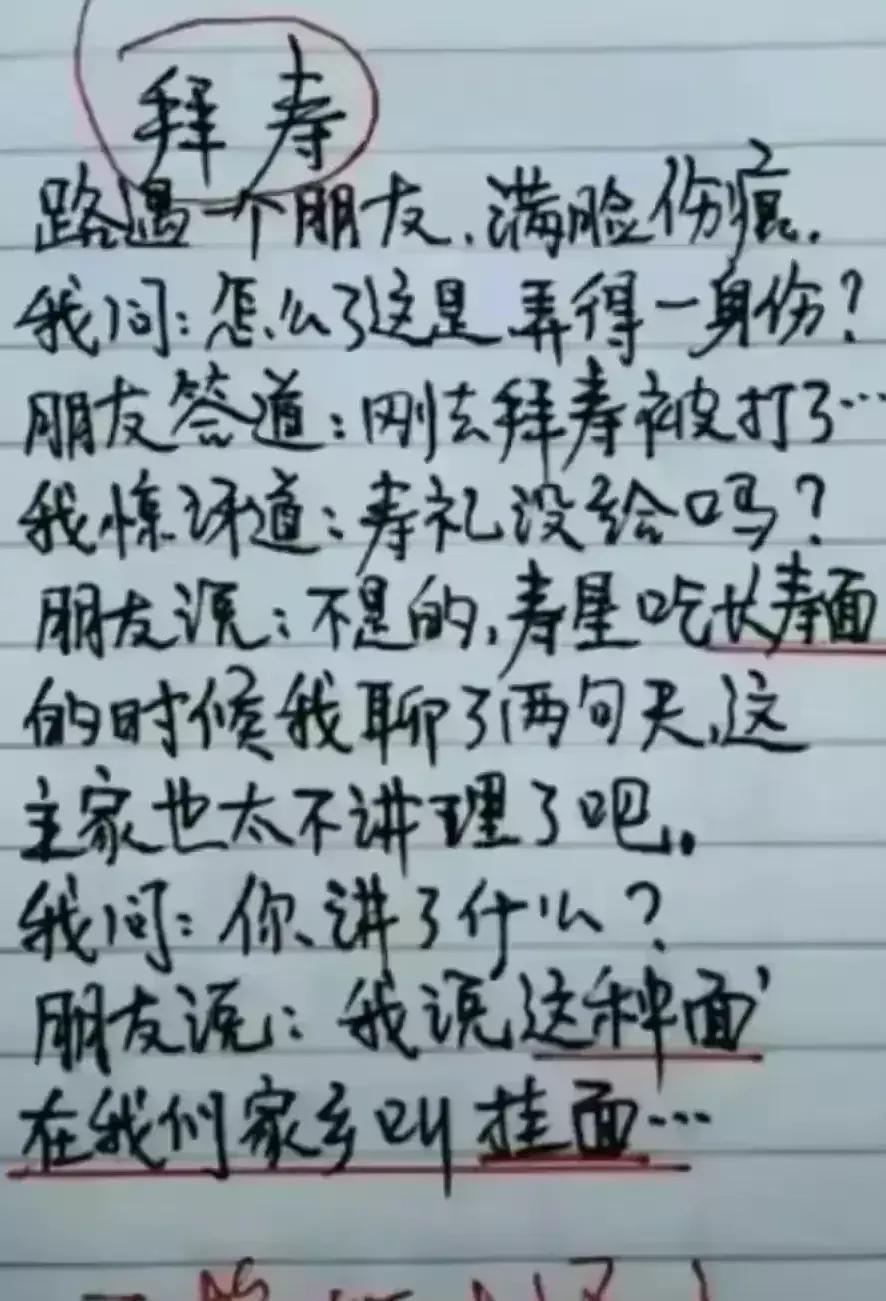 拜寿
路遇一个朋友,满脸伤痕.
我问:怎么了这是弄得一身伤?
朋友答道:刚去拜寿被打了…
我惊讶道:寿礼没给吗?
朋友说:不是的,寿星吃长寿面
的时候我聊了两句天,这
主家也太不讲理了吧.
我问:你讲了什么?
朋友说:我说这种面
在我们家乡叫挂面…